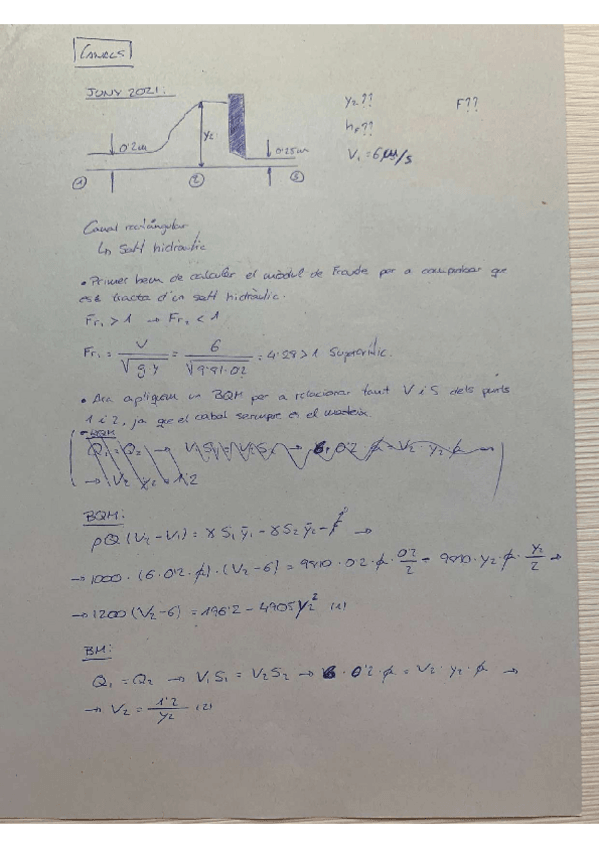 CANALS
JUNY 2021:
y2??
F??
hF??
V1 = 6 m/s
0'2m
y2
0'25m
1
2
3
Canal rectangular
↳ Salt hidràulic
• Primer hem de calcular el mòdul de Froude per a comprobar que
es tracta d'un salt hidràulic.
Fr1 > 1 → Fr2 < 1
Fr1 = V / √(g·y) = 6 / √(9'81·0'2) = 4'28 > 1 Supercrític.
• Ara apliquem un BQM per a relacionar tant V i S dels punts
1 i 2, ja que el cabal sempre és el mateix.
BQM
Q1 = Q2 → V1S1 = V2S2 → 6·0'2·b = V2·y2·b →
→ V2 y2 = 1'2
BQM:
ρQ(V2-V1) = γS1ȳ1 - γS2ȳ2 - F 0 →
→ 1000·(6·0'2·b)·(V2-6) = 9810·0'2·b·0'2/2 - 9810·y2·b·y2/2 →
→ 1200(V2-6) = 196'2 - 4905y2² (1)
BM:
Q1 = Q2 → V1S1 = V2S2 → 6·0'2·b = V2·y2·b →
→ V2 = 1'2/y2 (2)